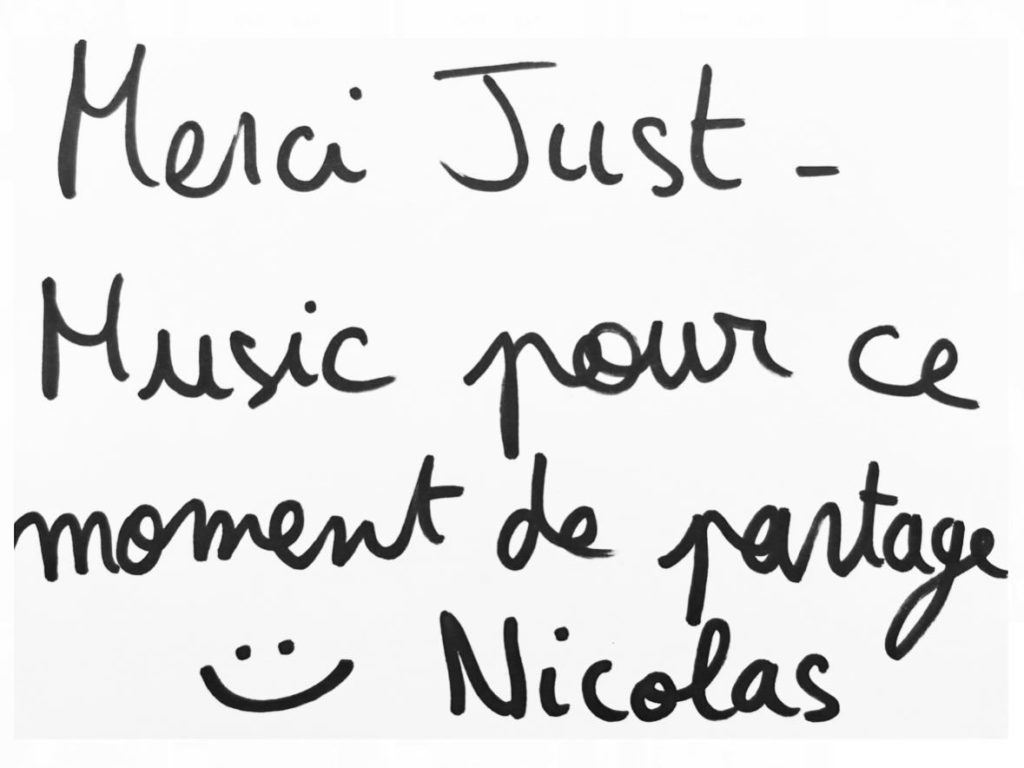 Merci Just-
Music pour ce
moment de partage
Nicolas